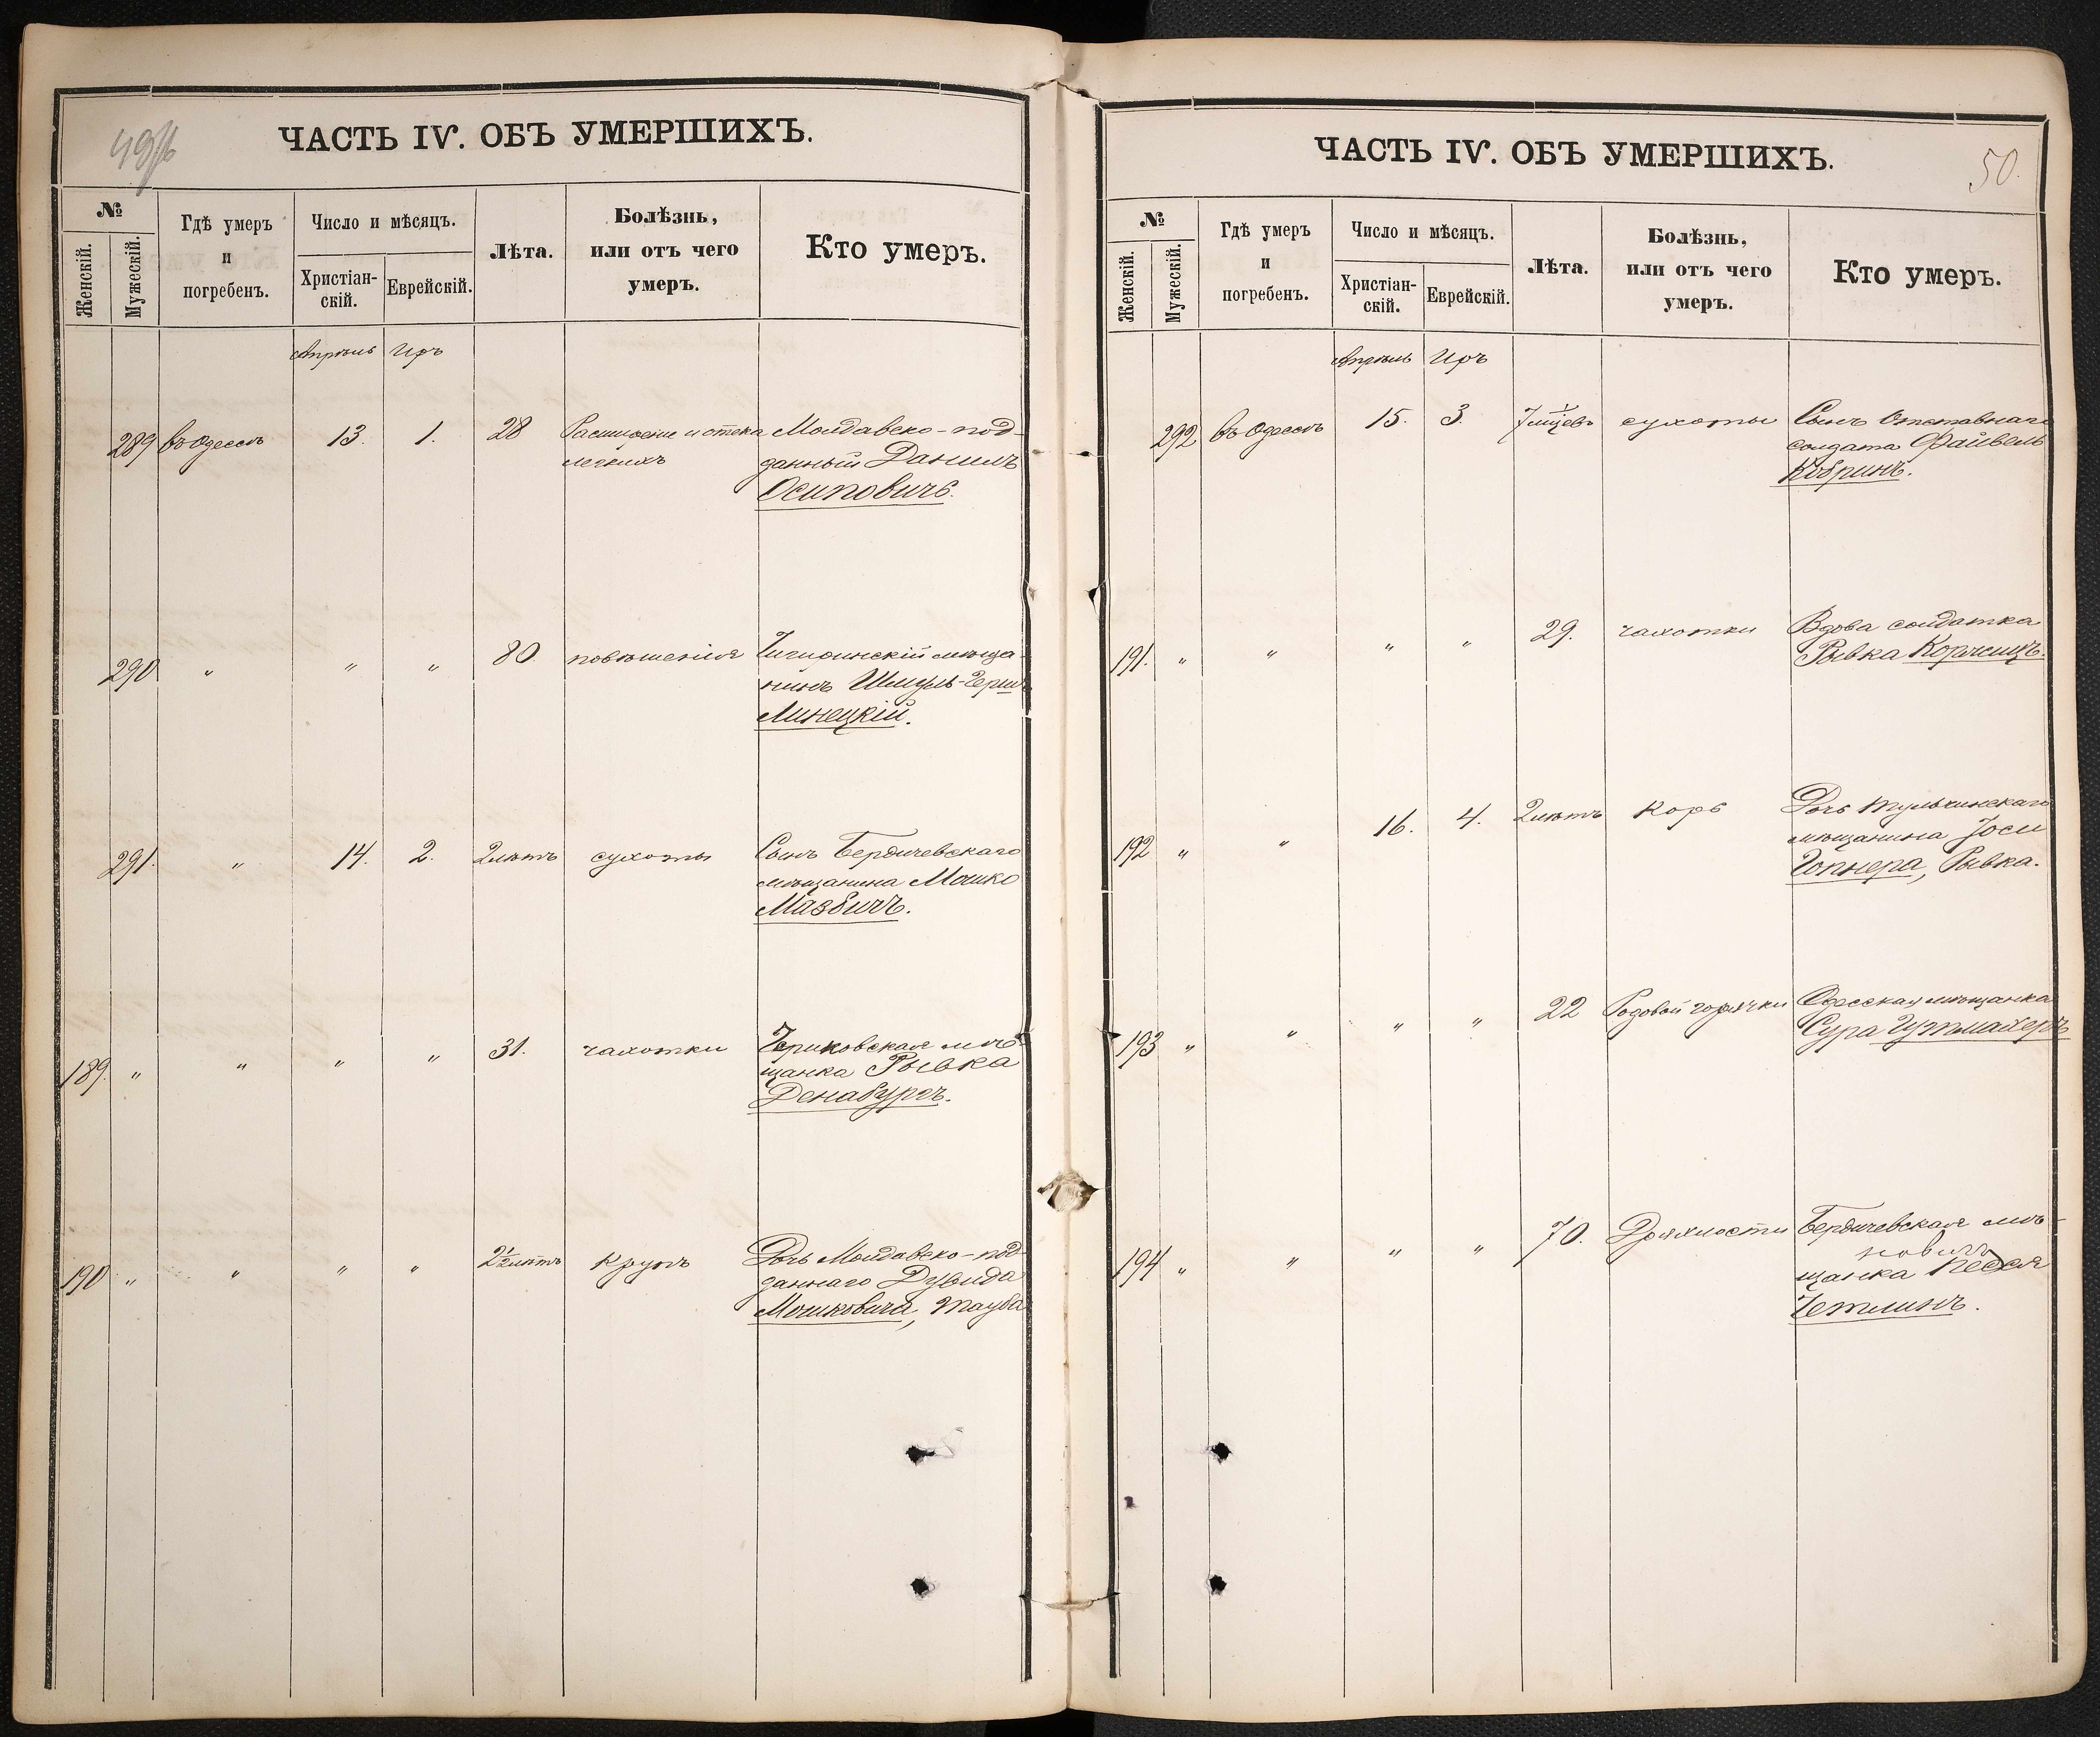 49об
ЧАСТЬ IV. ОБЪ УМЕРШИХЪ.
№
Женскій.
Мужескій.
Гдѣ умеръ
и
погребенъ.
Число и мѣсяцъ.
Христіан-
скій.
Еврейскій.
Лѣта.
Болѣзнь,
или отъ чего
умеръ.
Кто умеръ.
Апрѣль Иръ
289 въ Одессѣ 13. 1. 28 Расширеніе и отека Молдавско-под-
легкихъ данный Данилъ
Осиповичъ.
290 " " " 80 повѣшенія Чигиринскій мѣща-
нинъ Шмуль-Герш
Линецкій.
291. " 14. 2. 2 лѣтъ сухоты Сынъ Бердичевскаго
мѣщанина Мошко
Мазбичъ.
189. " " " " 31. чахотки Чериковская мѣ-
щанка Рывка
Денабургъ.
190 " " " " 2½ лѣтъ крупъ Дочь Молдавско-под-
даннаго Дувида
Мошковича, Тауба
50.
ЧАСТЬ IV. ОБЪ УМЕРШИХЪ.
№
Женскій.
Мужескій.
Гдѣ умеръ
и
погребенъ.
Число и мѣсяцъ.
Христіан-
скій.
Еврейскій.
Лѣта.
Болѣзнь,
или отъ чего
умеръ.
Кто умеръ.
Апрѣль Иръ
292 въ Одессѣ 15. 3. 7 мѣцевъ сухоты Сынъ Отставнаго
солдата Файвель
Кобринъ.
191. " " " " 29. чахотки Вдова солдатка
Рывка Корчицъ.
192 " " 16. 4. 2 лѣтъ корь Дочь Тульчинскаго
мѣщанина Іоси
Гопнера, Рывка.
193 " " " " 22 Родовой горячки Одесская мѣщанка
Сура Гутмахеръ
194 " " " " 70. Дряхлости Бердичевская мѣ-
щанка Песся
Четлинъ.